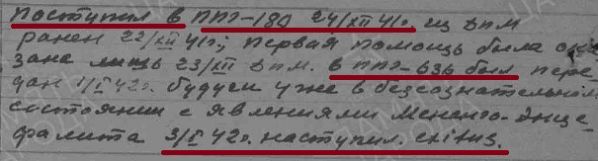 Поступил в ППГ-180 24/XII 41г. из ДПМ
ранен 22/XII 41г; первая помощь была ока
зана лишь 23/XII ДПМ. в ППГ-636 был пере
дан 1/I 42г. будучи уже в безсознательном
состоянии с явлениями Менинго-Энце
фалита 3/I 42г. наступил. exitus.